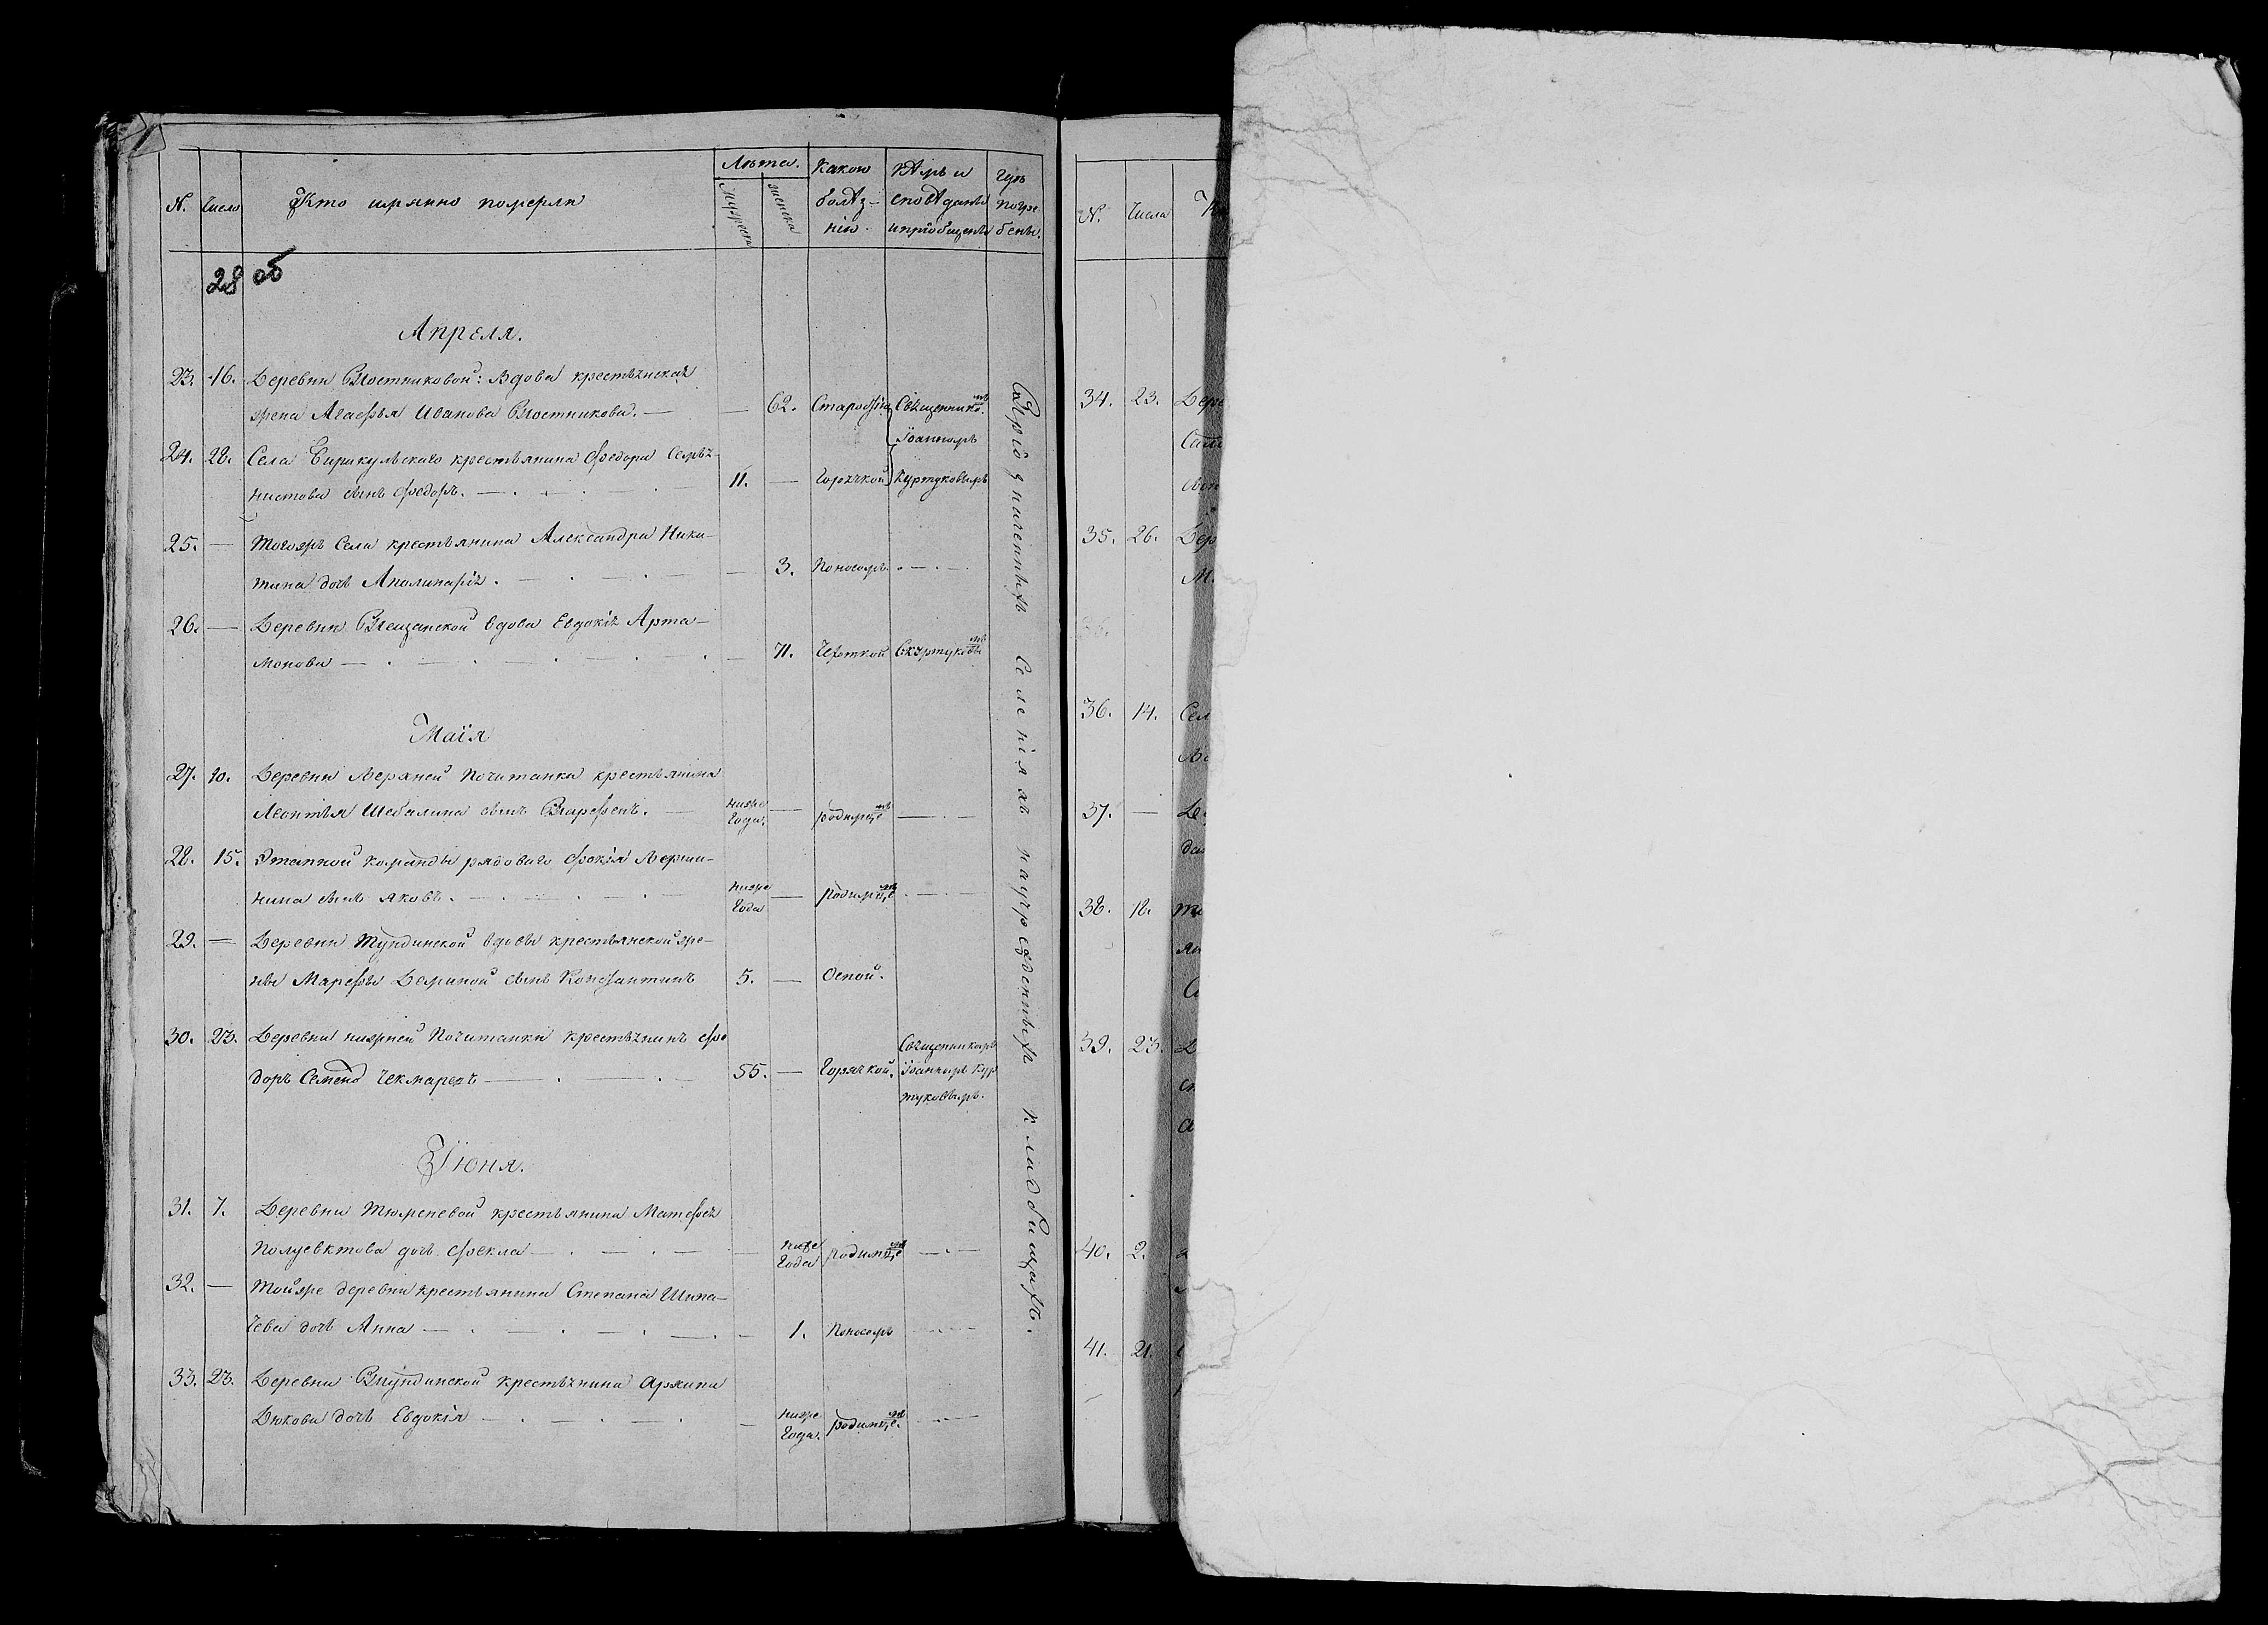 N. Число Кто имянно померли Лѣта. Какою болѣз- нію. Кѣмъ и сповѣданы и пріобщены Гдѣ погре бены.
Мужеска женска
28 об
Апреля.
23. 16. Деревни Постниковой: Вдова крестьянская
жена Агафья Иванова Постникова. — — 62. Старостію Священникомъ
Іоанномъ
24. 28. Села Бирикульскаго крестьянина Федора
сынъ Федоръ. 11. — Горячкой Куртуковымъ
25. — Тогожъ Села крестьянина Александра Ники-
тина дочь Аполинарія. — 3. Поносомъ. —
26. — Деревни вдова Евдокія Арта-
монова — 71. Чехоткой С. Куртуковымъ
Маія
27. 10. Деревни Верхней Почитанки крестьянина
Леонтья Шебалина сынъ Парфенъ. — ниже Года. — родимцемъ —
28. 15. Этапной команды рядоваго Фокія Верши-
нина сынъ Яковъ. ниже Года — родимцемъ —
29. — Деревни Тундинской вдовы крестьянской же-
ны Марфы Деминой сынъ Константинъ 5. — Оспой.
30. 23. Деревни нижней Почитанки крестьянинъ Фе
доръ Семеновъ Чекмаревъ — 55. — Горячкой. Священникомъ Іоанномъ Кур
туковымъ.
Іюня.
31. 7. Деревни Тюменевой крестьянина Матфея
Полуевктова дочь Фекла — ниже Года родимцемъ —
32. — Тойже деревни крестьянина Степана Шипа-
чева дочь Анна — 1. Поносомъ —
33. 23. Деревни Тундинской крестьянина Архипа
Дюкова дочь Евдокія — ниже Года. родимцемъ. —
При означенныхъ Селеніяхъ на учрежденныхъ кладбищахъ.
N. Числа
34. 23.
35. 26.
36. 14.
37. —
38. 18.
39. 23.
40. 2.
41. 21.